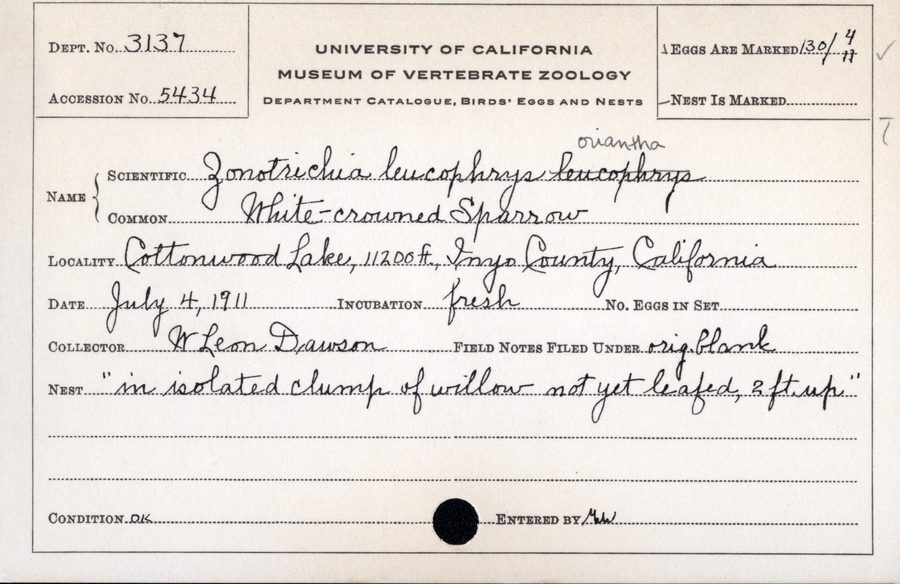 Dept. No. 3137
Accession No. 5434
UNIVERSITY OF CALIFORNIA
MUSEUM OF VERTEBRATE ZOOLOGY
Department Catalogue, Birds' Eggs and Nests
Eggs Are Marked 130/4 11
Nest Is Marked
oriantha
Name
Scientific Zonotrichia leucophrys leucophrys
Common White-crowned Sparrow
Locality Cottonwood Lake, 11200 ft., Inyo County, California
Date July 4, 1911 Incubation fresh No. Eggs in Set
Collector W Leon Dawson Field Notes Filed Under orig. blank
Nest "in isolated clump of willow not yet leafed, 2 ft. up"
Condition OK Entered by